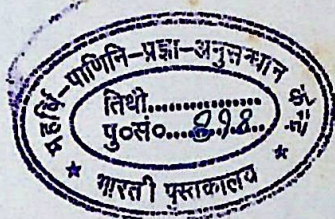 महर्षि-पाणिनि-प्रज्ञा-अनुसन्धान केन्द्र
तिथी....................
पु०सं०....898....
* भारती पुस्तकालय *